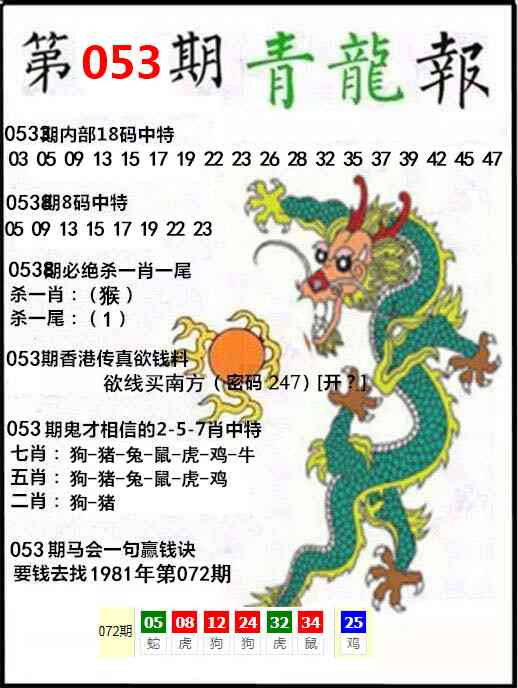 第053期 青龍報
053期内部18码中特
03 05 09 13 15 17 19 22 23 26 28 32 35 37 39 42 45 47
053期8码中特
05 09 13 15 17 19 22 23
053期必绝杀一肖一尾
杀一肖：（猴）
杀一尾：（1）
053期香港传真欲钱料
欲线买南方（密码 247）[开？]
053 期鬼才相信的2-5-7肖中特
七肖：狗-猪-兔-鼠-虎-鸡-牛
五肖：狗-猪-兔-鼠-虎-鸡
二肖：狗-猪
053 期马会一句赢钱诀
要钱去找1981年第072期
072期 05 08 12 24 32 34 25
蛇 虎 狗 狗 虎 鼠 鸡